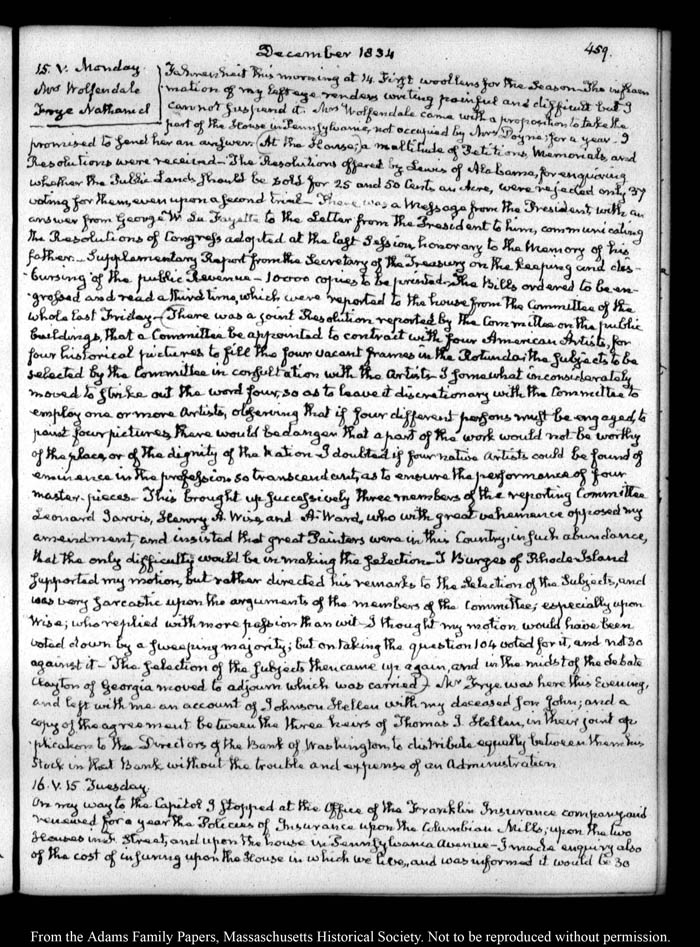 December 1834
459.
15. V. Monday
Mrs Wolfendale
Frye Nathaniel
Fahrenheit this morning at 14. First woollens for the Season – The inflam
mation of my left eye renders writing painful and difficult but I
cannot suspend it. Mrs Wolfendale came with a proposition to take the
part of the House in Pennsylvania, not occupied by Mrs Doyne; for a year – I
promised to send her an answer. (At the House; a multitude of Petitions, Memorials and
Resolutions were received – The Resolutions offered by Lewis of Alabama, for enquiring
whether the Public Lands should be sold for 25 and 50 Cents an Acre, were rejected only 37
voting for them, even upon a second trial – There was a Message from the President with an
answer from George W. La Fayette to the Letter from the President to him, communicating
the Resolutions of Congress adopted at the last Session, honorary to the Memory of his
father. – Supplementary Report from the Secretary of the Treasury on the keeping and dis-
-bursing of the public Revenue – 10000 copies to be printed – The Bills ordered to be en-
grossed and read a third time, which were reported to the house from the Committee of the
whole last Friday – (There was a joint Resolution reported by the Committee on the public
buildings, that a Committee be appointed to contract with four American Artists, for
four historical pictures to fill the four vacant frames in the Rotunda; the subjects to be
selected by the Committee in consultation with the Artists – I somewhat inconsiderately
moved to strike out the word four, so as to leave it discretionary with the Committee to
employ one or more Artists, observing that if four different persons must be engaged, to
paint four pictures, there would be danger that a part of the work would not be worthy
of the place, or of the dignity of the Nation – I doubted if four native Artists could be found of
eminence in the profession so transcendent, as to ensure the performance of four
master-pieces – This brought up successively three members of the reporting Committee
Leonard Jarvis, Henry A. Wise, and A. Ward, who with great vehemence opposed my
amendment, and insisted that great Painters were in this Country, in such abundance,
that the only difficulty would be in making the selection – T Burges of Rhode Island
supported my motion, but rather directed his remarks to the Selection of the Subjects, and
was very sarcastic upon the arguments of the members of the Committee; especially upon
Wise; who replied with more passion than wit – I thought my motion would have been
voted down by a sweeping majority; but on taking the question 104 voted for it, and not 30
against it – The selection of the subjects then came up again, and in the midst of the debate
Clayton of Georgia moved to adjourn which was carried) – Mr Frye was here this Evening,
and left with me an account of Johnson Hellen with my deceased Son John; and a
copy of the agreement between the three heirs of Thomas J. Hellen, in their joint ap-
-plication to the Directors of the Bank of Washington, to distribute equally between them his
Stock in that Bank without the trouble and expense of an Administration
16. V. 15 Tuesday.
On my way to the Capitol I stopped at the Office of the Franklin Insurance company, and
renewed for a year the Policies of Insurance upon the Columbian Mills, upon the two
Houses in F. Street, and upon the house in Pennsylvania Avenue – I made enquiry also
of the cost of insuring upon the House in which we live, and was informed it would be 30
From the Adams Family Papers, Massachusetts Historical Society. Not to be reproduced without permission.